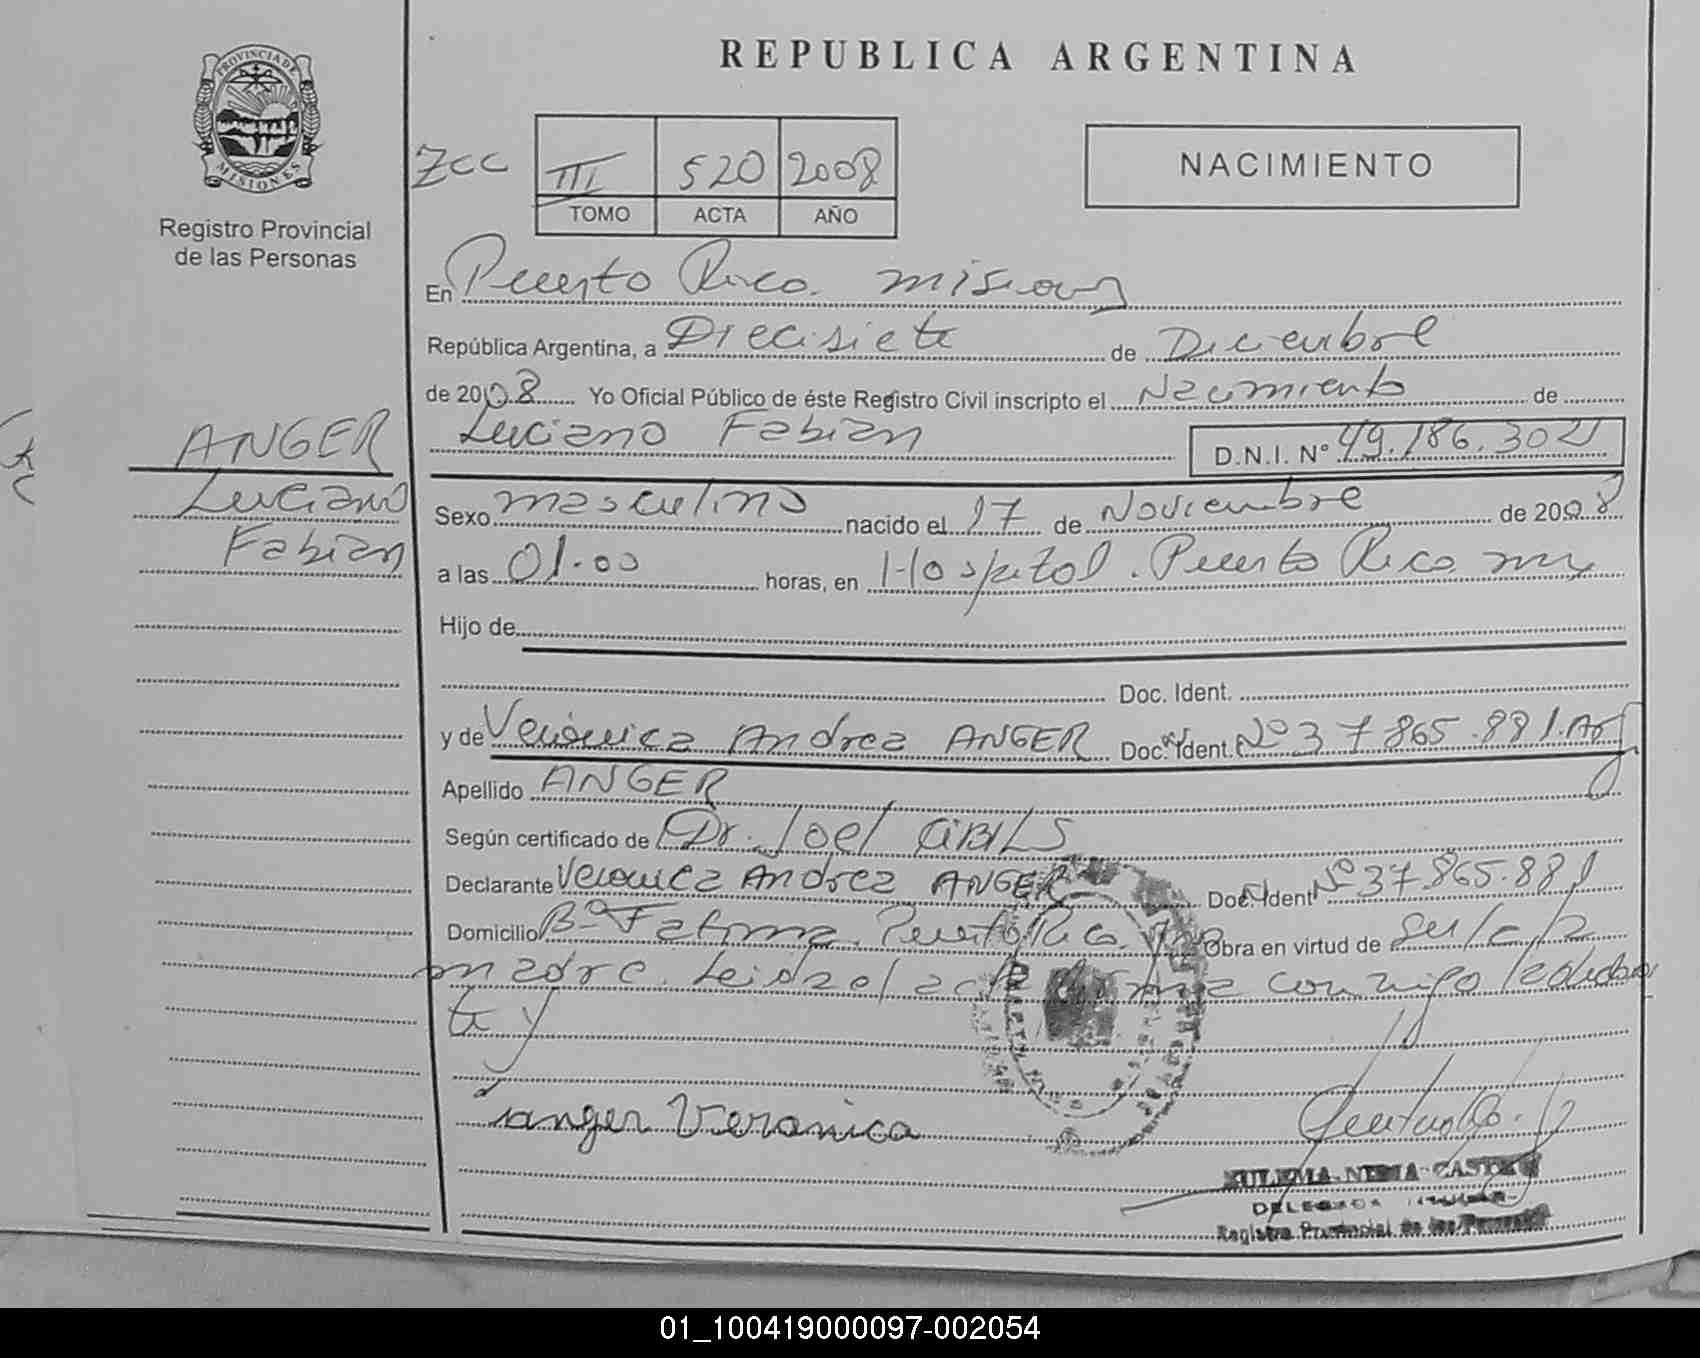 PROVINCIA DE
MISIONES
Registro Provincial
de las Personas
REPUBLICA ARGENTINA
ZCC III 520 2008
TOMO ACTA AÑO
NACIMIENTO
En Puerto Rico. Misiones
República Argentina, a Diecisiete de Diciembre
de 2008 Yo Oficial Público de éste Registro Civil inscripto el Nacimiento de
Luciano Fabian D.N.I. N° 49.186.302
ANGER
Luciano
Fabian
Sexo masculino nacido el 17 de Noviembre de 2008
a las 01.00 horas, en Hospital. Puerto Rico
Hijo de
Doc. Ident.
y de Verónica Andrea ANGER Doc. Ident. Nº 37.865.881. Arg
Apellido ANGER
Según certificado de Dr. Joel CIBILS
Declarante Veronica Andrea ANGER Doc. Ident Nº 37.865.881
Domicilio Bº Fatima. Puerto Rico. Obra en virtud de ser la
madre. Leida el acta firma conmigo la declaran
te y
anger Veronica
ZULEMA NIDIA CASTRO
DELEGADA TITULAR
Registro Provincial de las Personas
01_100419000097-002054